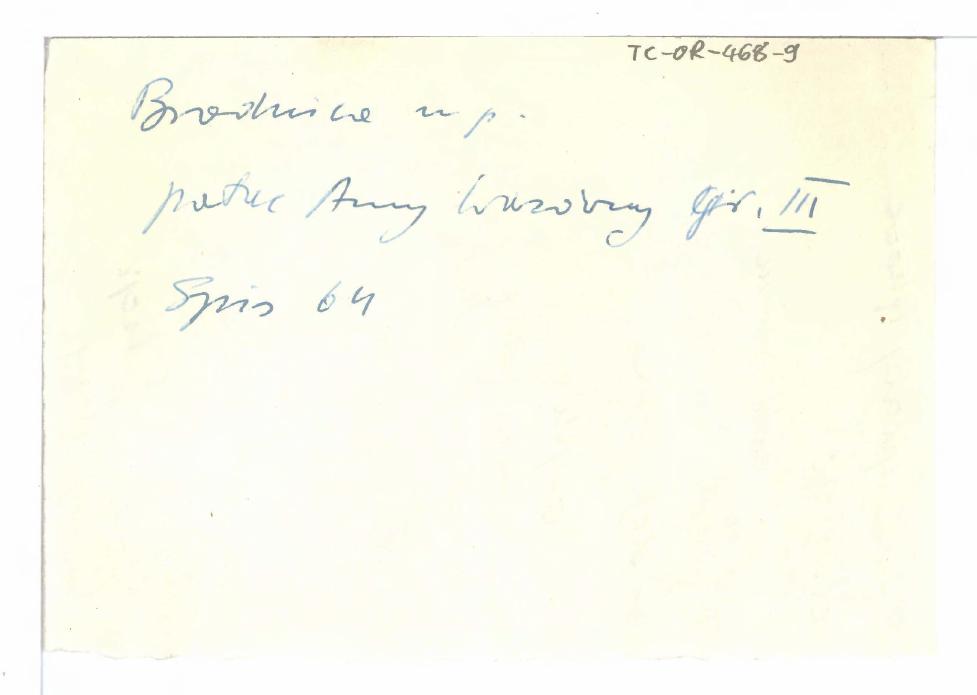 TC-OR-468-9
Brodnica n p.
pałac Anny Wazówny Gr. III
Spis 64